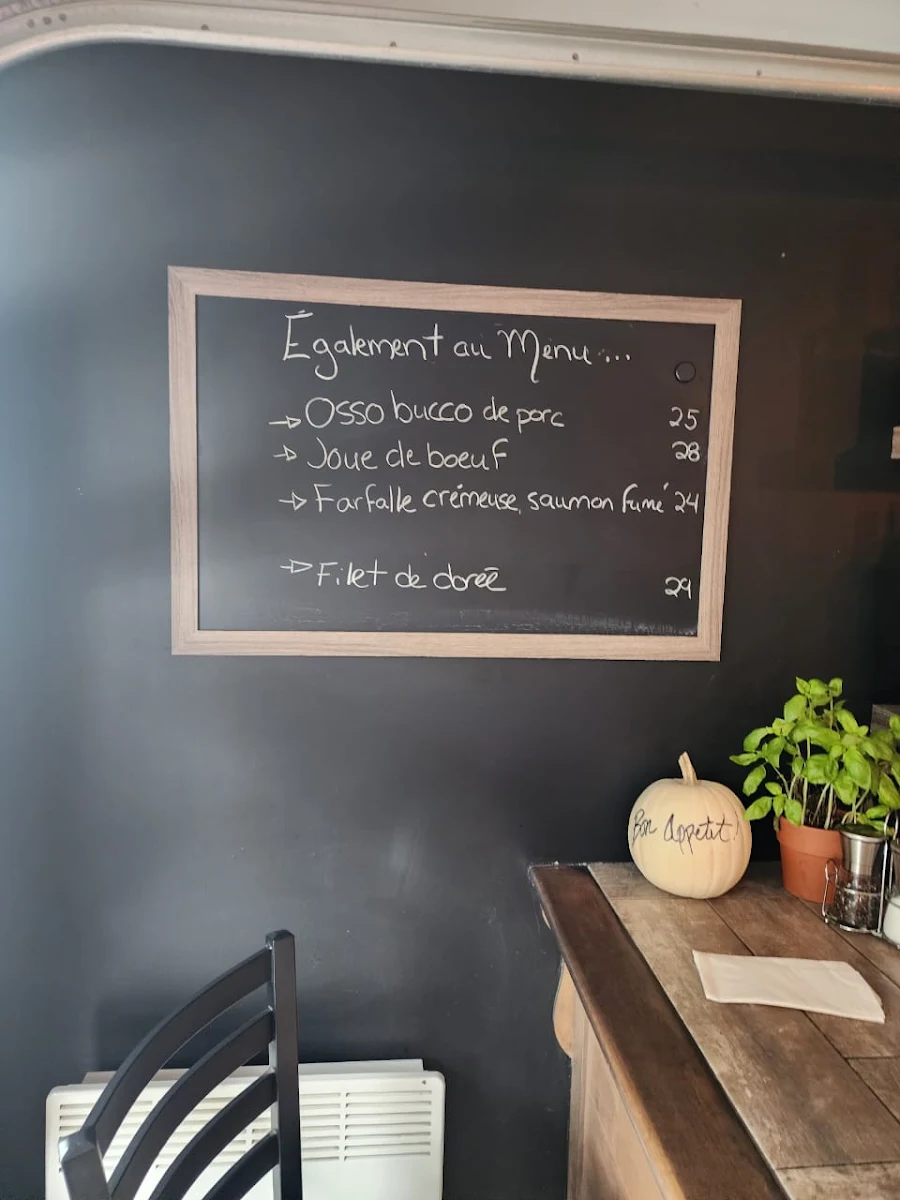 Également au Menu...
→ Osso bucco de porc 25
→ Joue de boeuf 28
→ Farfalle crémeuse, saumon fumé 24
→ Filet de doreē 29
Bon Appetit!